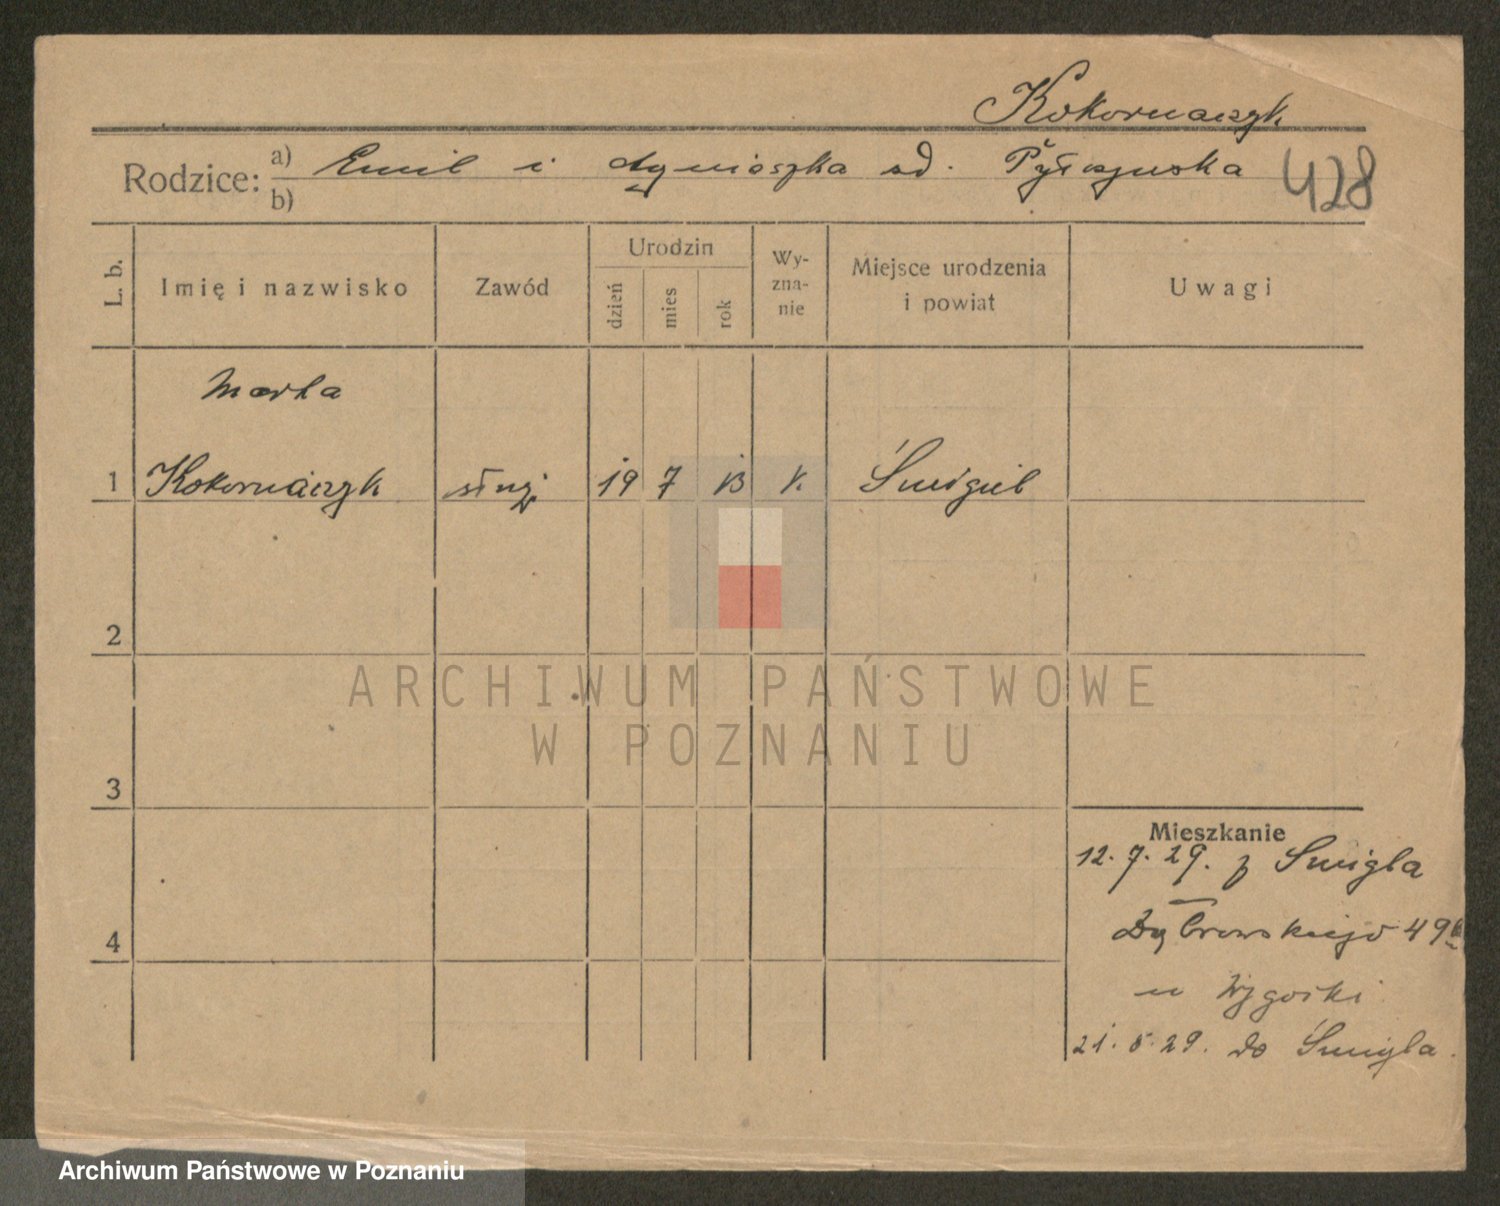 Kokornaczyk
Rodzice: a) Emil i Agnieszka
b)
428
L. b.
Imię i nazwisko
Zawód
Urodzin
dzień
mies
rok
Wy-
zna-
nie
Miejsce urodzenia
i powiat
Uwagi
Marta
1 Kokornaczyk służ. 19 7 13 k. Śmigiel
2
ARCHIWUM PAŃSTWOWE
W POZNANIU
3
Mieszkanie
12. 7. 29. z Śmigla
Dąbrowskiego 49
4
u
21. 5. 29. do Śmigla.
Archiwum Państwowe w Poznaniu